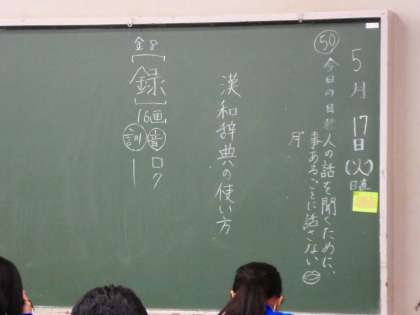 5月17日(火)
日直
㊿ 今日の目標 人の話を聞くために、
事あるごとに話さない
漢和辞典の使い方
金8
録
16画
音 ロク
訓 ー